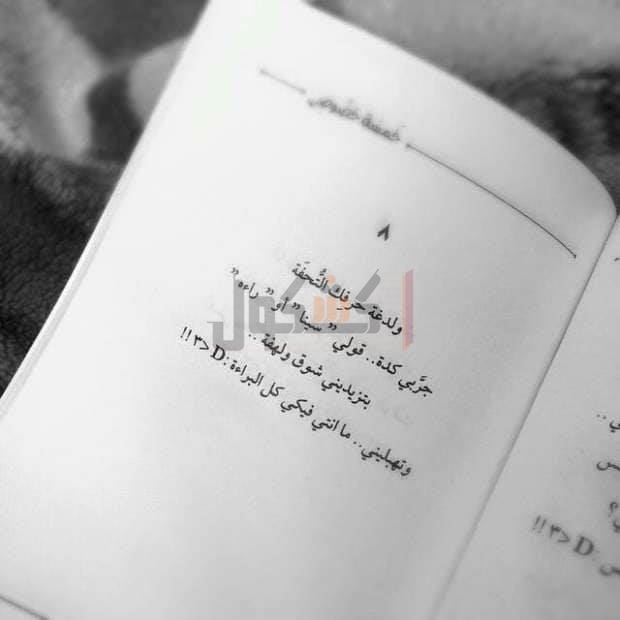 خمسة خصوصي
٨
ولدغة حرفك التُّحفَة
جرَّبي كدة.. قولي " سينا " أو " راءه "
بتزيديني شوق ولهفة ..
وتهبليني.. ما انتي فيكي كل البراءة :D <٣ !!
كشكول
ي ..
س
ي؟
س :D <٣ !!